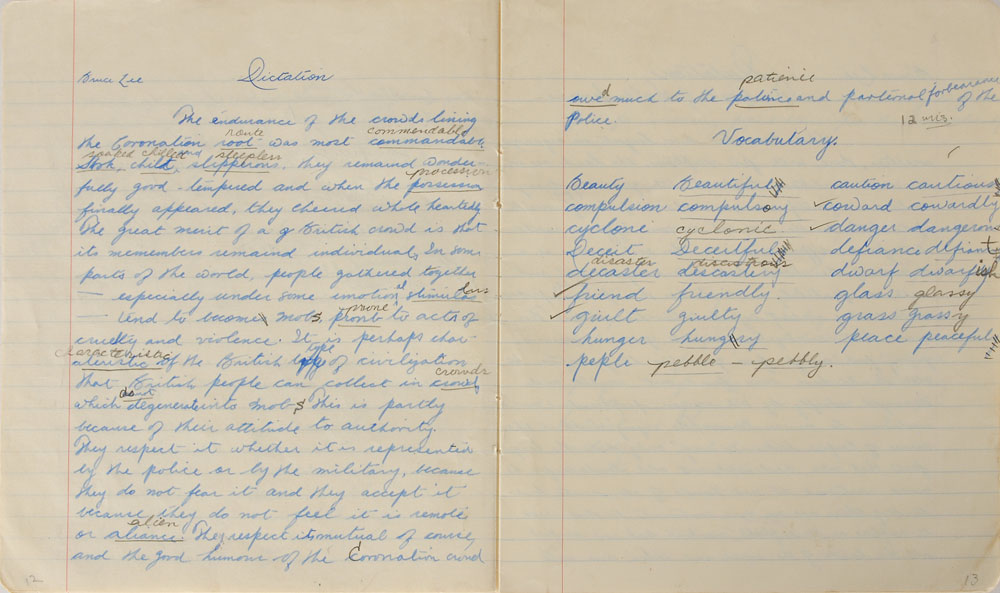 Bruce Lee
Dictation
The endurance of the crowds lining
route commendable
the Coronation root was most commandable
soaked chilled and sleepless
Sook, child, slipperons. They remained wonder-
procession
fully good-tempered and when the possession
finally appeared, they cheered whole heartedly
The great merit of a g British crowd is that
its memembers remained individual, In some
parts of the world, people gathered together
— especially under some emotional stimulous
prone
— tend to become mobs pront to acts of
cruelty and violence. It is perhaps char-
characteristic type
ateristic of the British type of civilization
crowds
that British people can collect in crowds
do not
which degenerate into mobs, This is partly
because of their attitude to authority.
They respect it whether it is represented
by the police or by the military, because
they do not fear it and they accept it
because they do not feel it is remote
alien
or aliance. They respect its mutual of course,
and the good-humour of the Coronation crowd
12
patience
owed much to the politics and parternal forbearance of the
Police.
12 mis.
Vocabutary.
Beauty Beautiful caution cautious
compulsion compulsory coward cowardly
cyclone cyclonic danger dangerous
Deceit Deceitful defiance defiant
disaster disastrous
decaster descastery dwarf dwarfish
friend friendly. glass glassy
guilt guilty grass grassy
hunger hungry peace peaceful
peple pebble – pebbly.
13